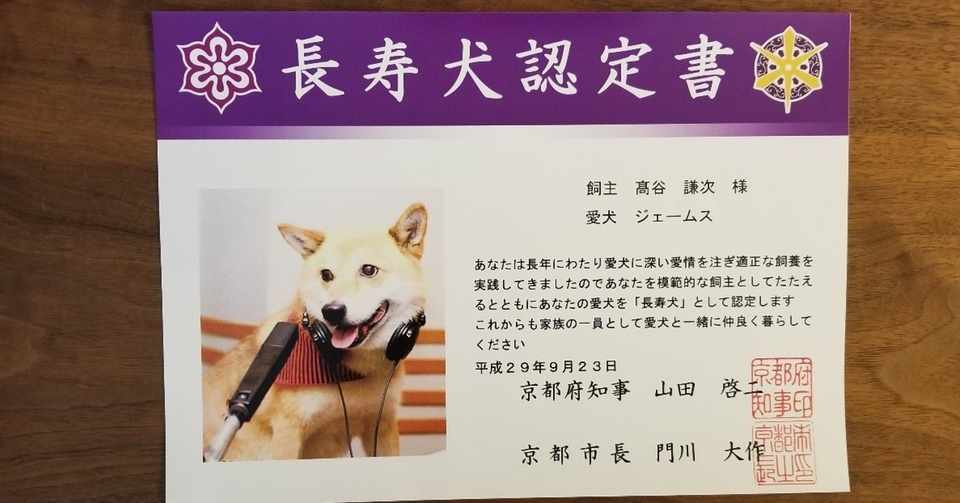 長寿犬認定書
飼主　髙谷　謙次　様
愛犬　ジェームス
あなたは長年にわたり愛犬に深い愛情を注ぎ適正な飼養を
実践してきましたのであなたを模範的な飼主としてたたえ
るとともにあなたの愛犬を「長寿犬」として認定します
これからも家族の一員として愛犬と一緒に仲良く暮らして
ください
平成２９年９月２３日
京都府知事　山田　啓二
京都府
知事印
京都市長　門川　大作